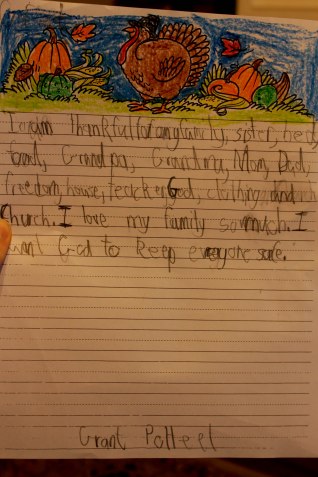 I am thankful for my family, sister, bed,
food, Grandpa, Grandma, Mom, Dad,
freedom, house, teacher God, clothing and
Church. I love my family so much. I
want God to keep everyone safe.
Grant